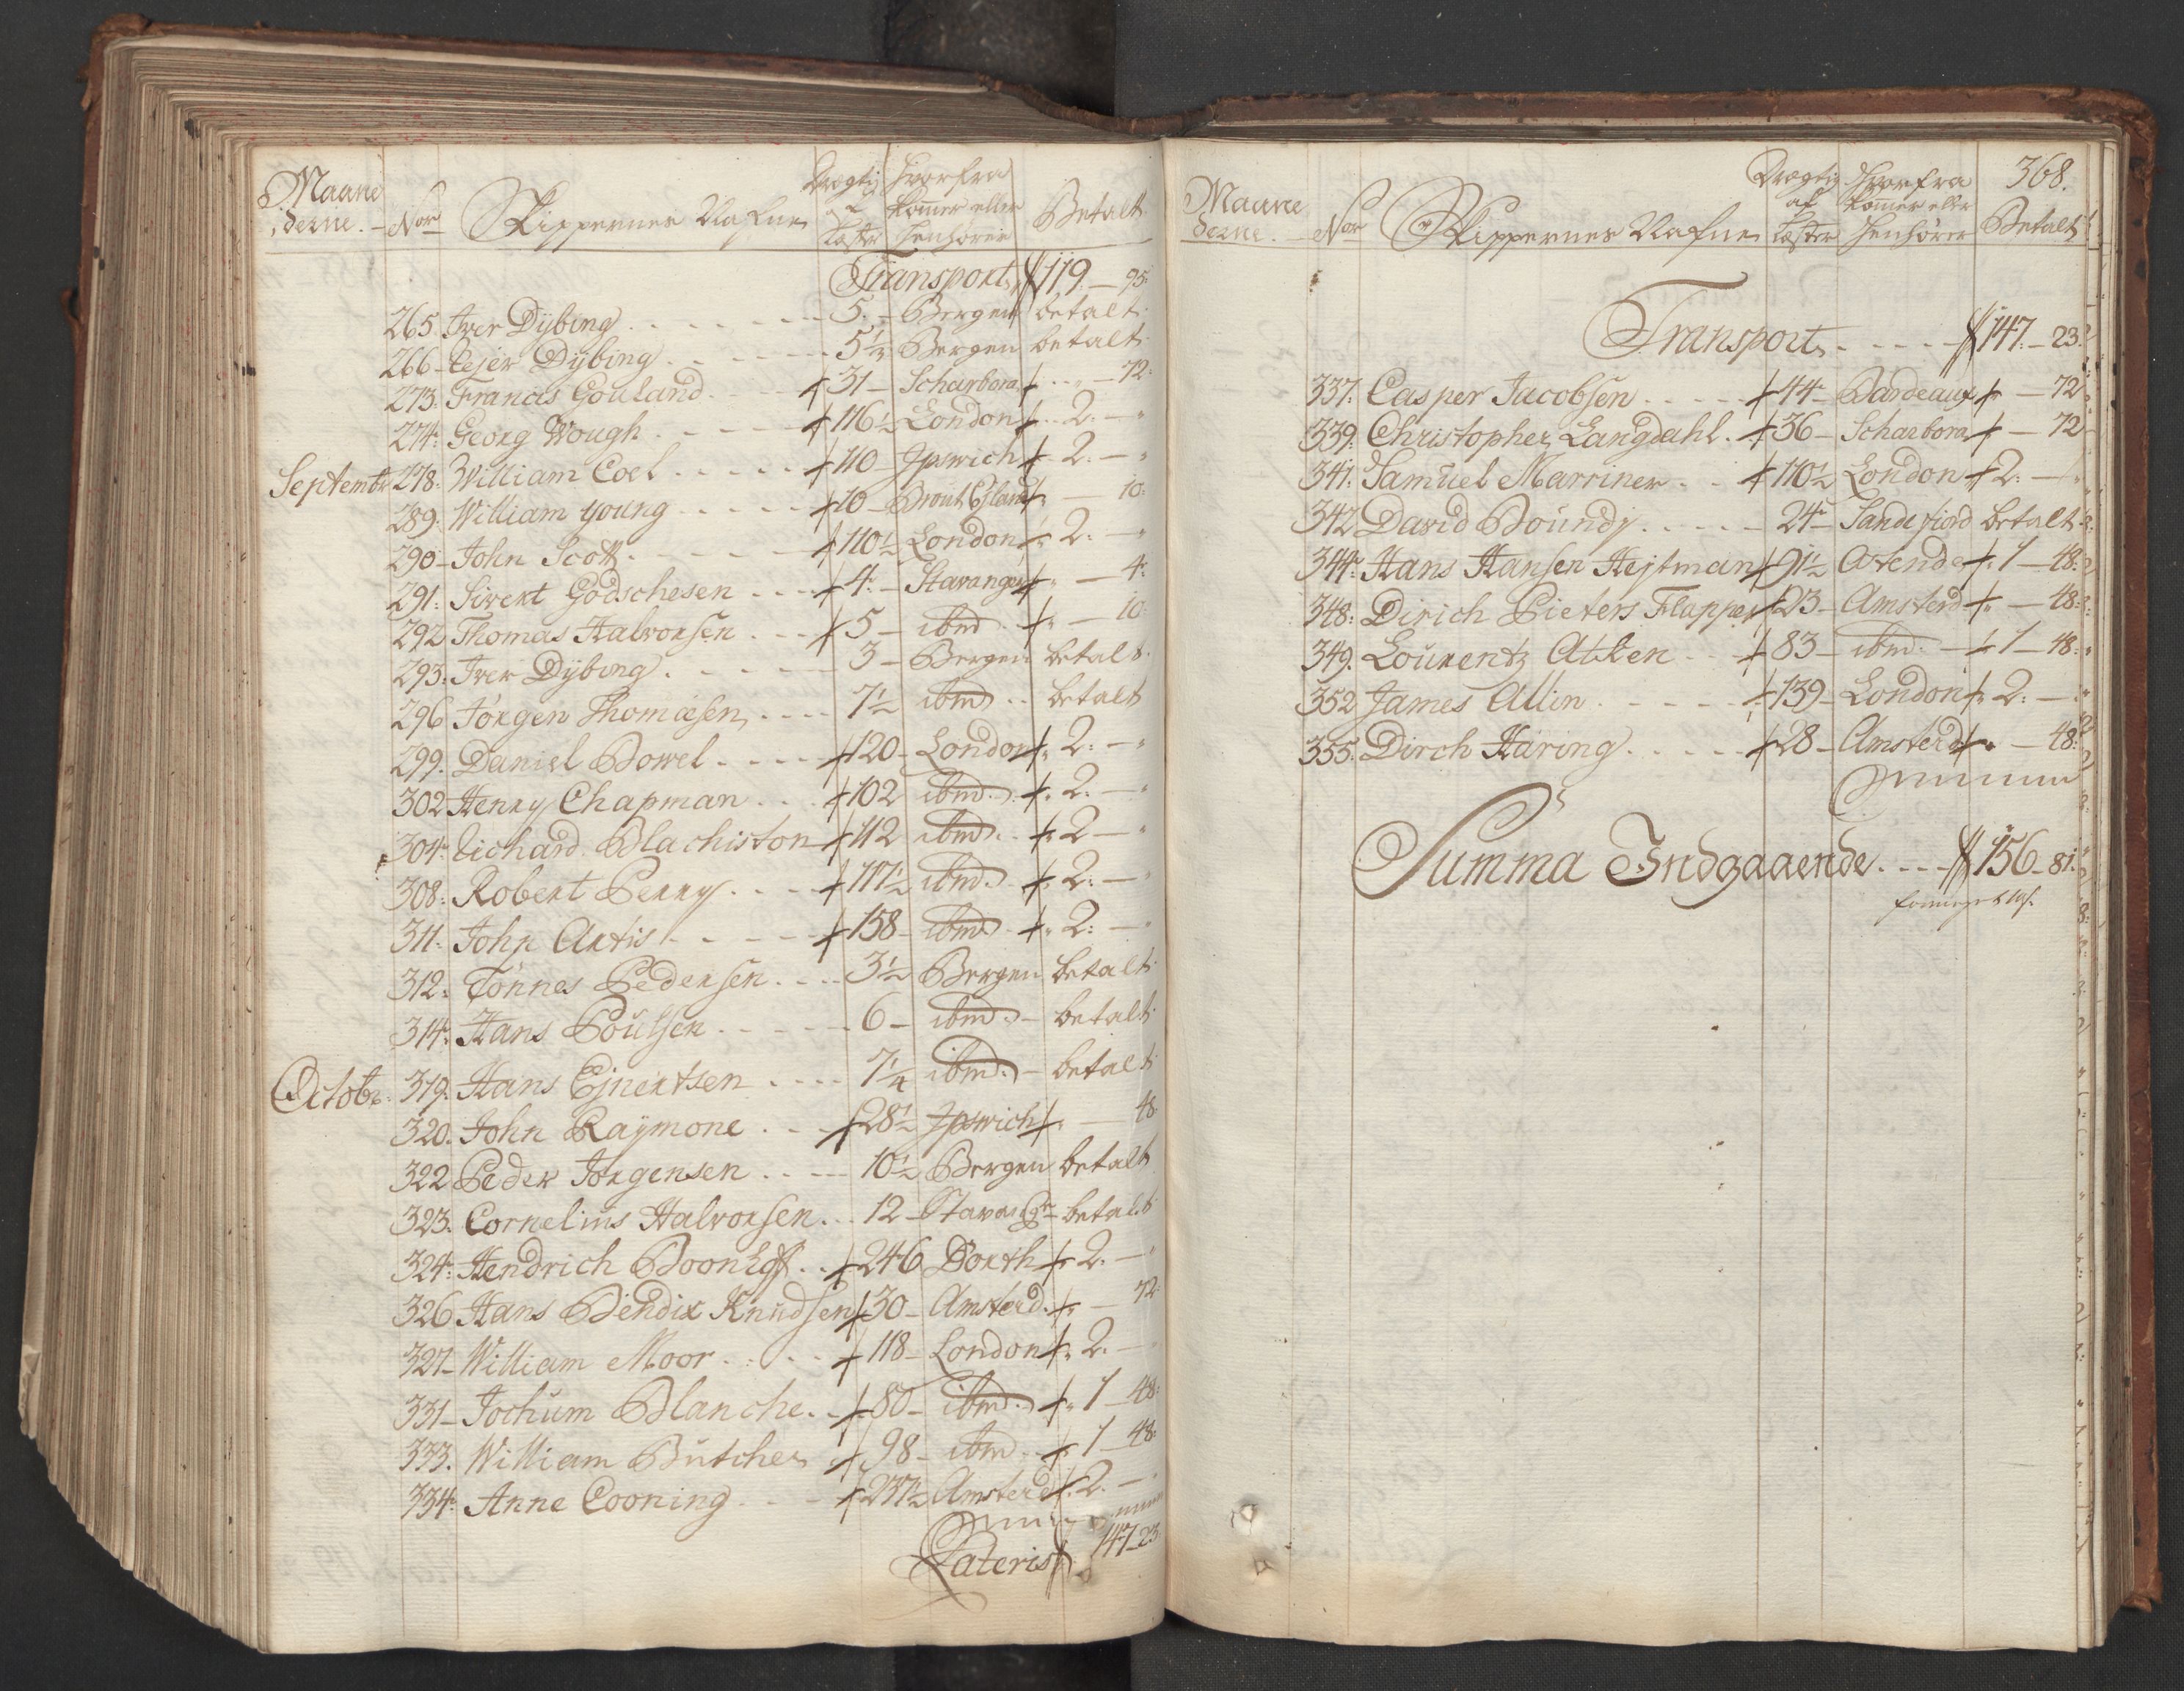 Maane
derne. Nor Skippernes Nafne Drægtig af Læster Hvorfra kommer eller henhører Betalt
Transport 119 – 95
265. Iver Dybing 5. – Bergen betalt
266 – Pejer Dybing 5½ Bergen betalt
273. Francis Gouland 31 – Scharbora – 72
274. Georg Wough 116½ London 2. –
Septembr 278. William Coel 110 – Ipswich 2. –
289. William Young 10 – – 10
290 – John Scott 110½ London 2. –
291. Sivert Godschesen 4. – Stavanger – 4
292 Thomas Halvorsen 5 – ibm – 10
293. Iver Dybing 3 – Bergen betalt
296 Jørgen Thomæsen 7½ ibm betalt
299. Daniel Bowel 120 – London 2. –
302 Henry Chapman 102 ibm 2. –
304. Richard Blachiston 112 ibm 2 –
308. Robert Perry 117½ ibm 2. –
311. John Artis 158 – ibm 2. –
312. Tønnes Pedersen 3½ Bergen betalt
314. Hans Poulsen 6 – ibm – betalt
Octobr. 319. Hans Ejnertsen 7¼ ibm – betalt
320. John Raymone 28½ Ipswich – 48
322 Peder Jørgensen 10½ Bergen betalt
323. Cornelius Halvorsen 12 – Stavanger betalt
324. Hendrich Boonhoff 246 Dorth 2. –
326 Hans Bendix Knudsen 30 – Amsterd. – 72
327 – William Moor 118 – London 2. –
331 – Jochum Blanche 80 – ibm 1 – 48
333. William Butcher 98 – ibm 1 – 48
334. Anne Cooning 237½ Amsterd 2. –
Lateris 147 – 23
368.
Maane
derne. Nor Skippernes Nafne Drægtig af Læster Hvorfra kommer eller henhører Betalt
Transport 147 – 23
337. Casper Jacobsen 44 – Bardeaux – 72
339. Christopher Langdahl 36 – Scharbora – 72
341. Samuel Marriner 110½ London 2. –
342 David Boundy 24 – Sandefiord betalt
344. Hans Hansen Hejtman 91½ Ostende 1 – 48
348. Dirich Pieters Flapper 23 – Amsterd – 48
349. Lourentz Atken 83 – ibm. – 1 – 48
352 James Allin 139 – London 2. –
355. Dirch Häring 28 – Amsterd – 48
Summa Indgaaende 156 – 81.